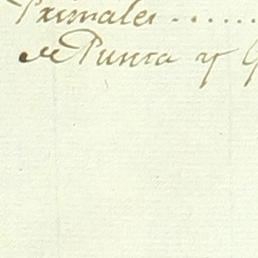 Primales ......
de Punta y